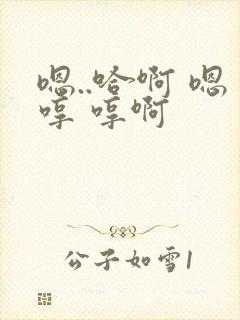 嗯..哈啊 嗯
哼 哼啊
公子如雪1